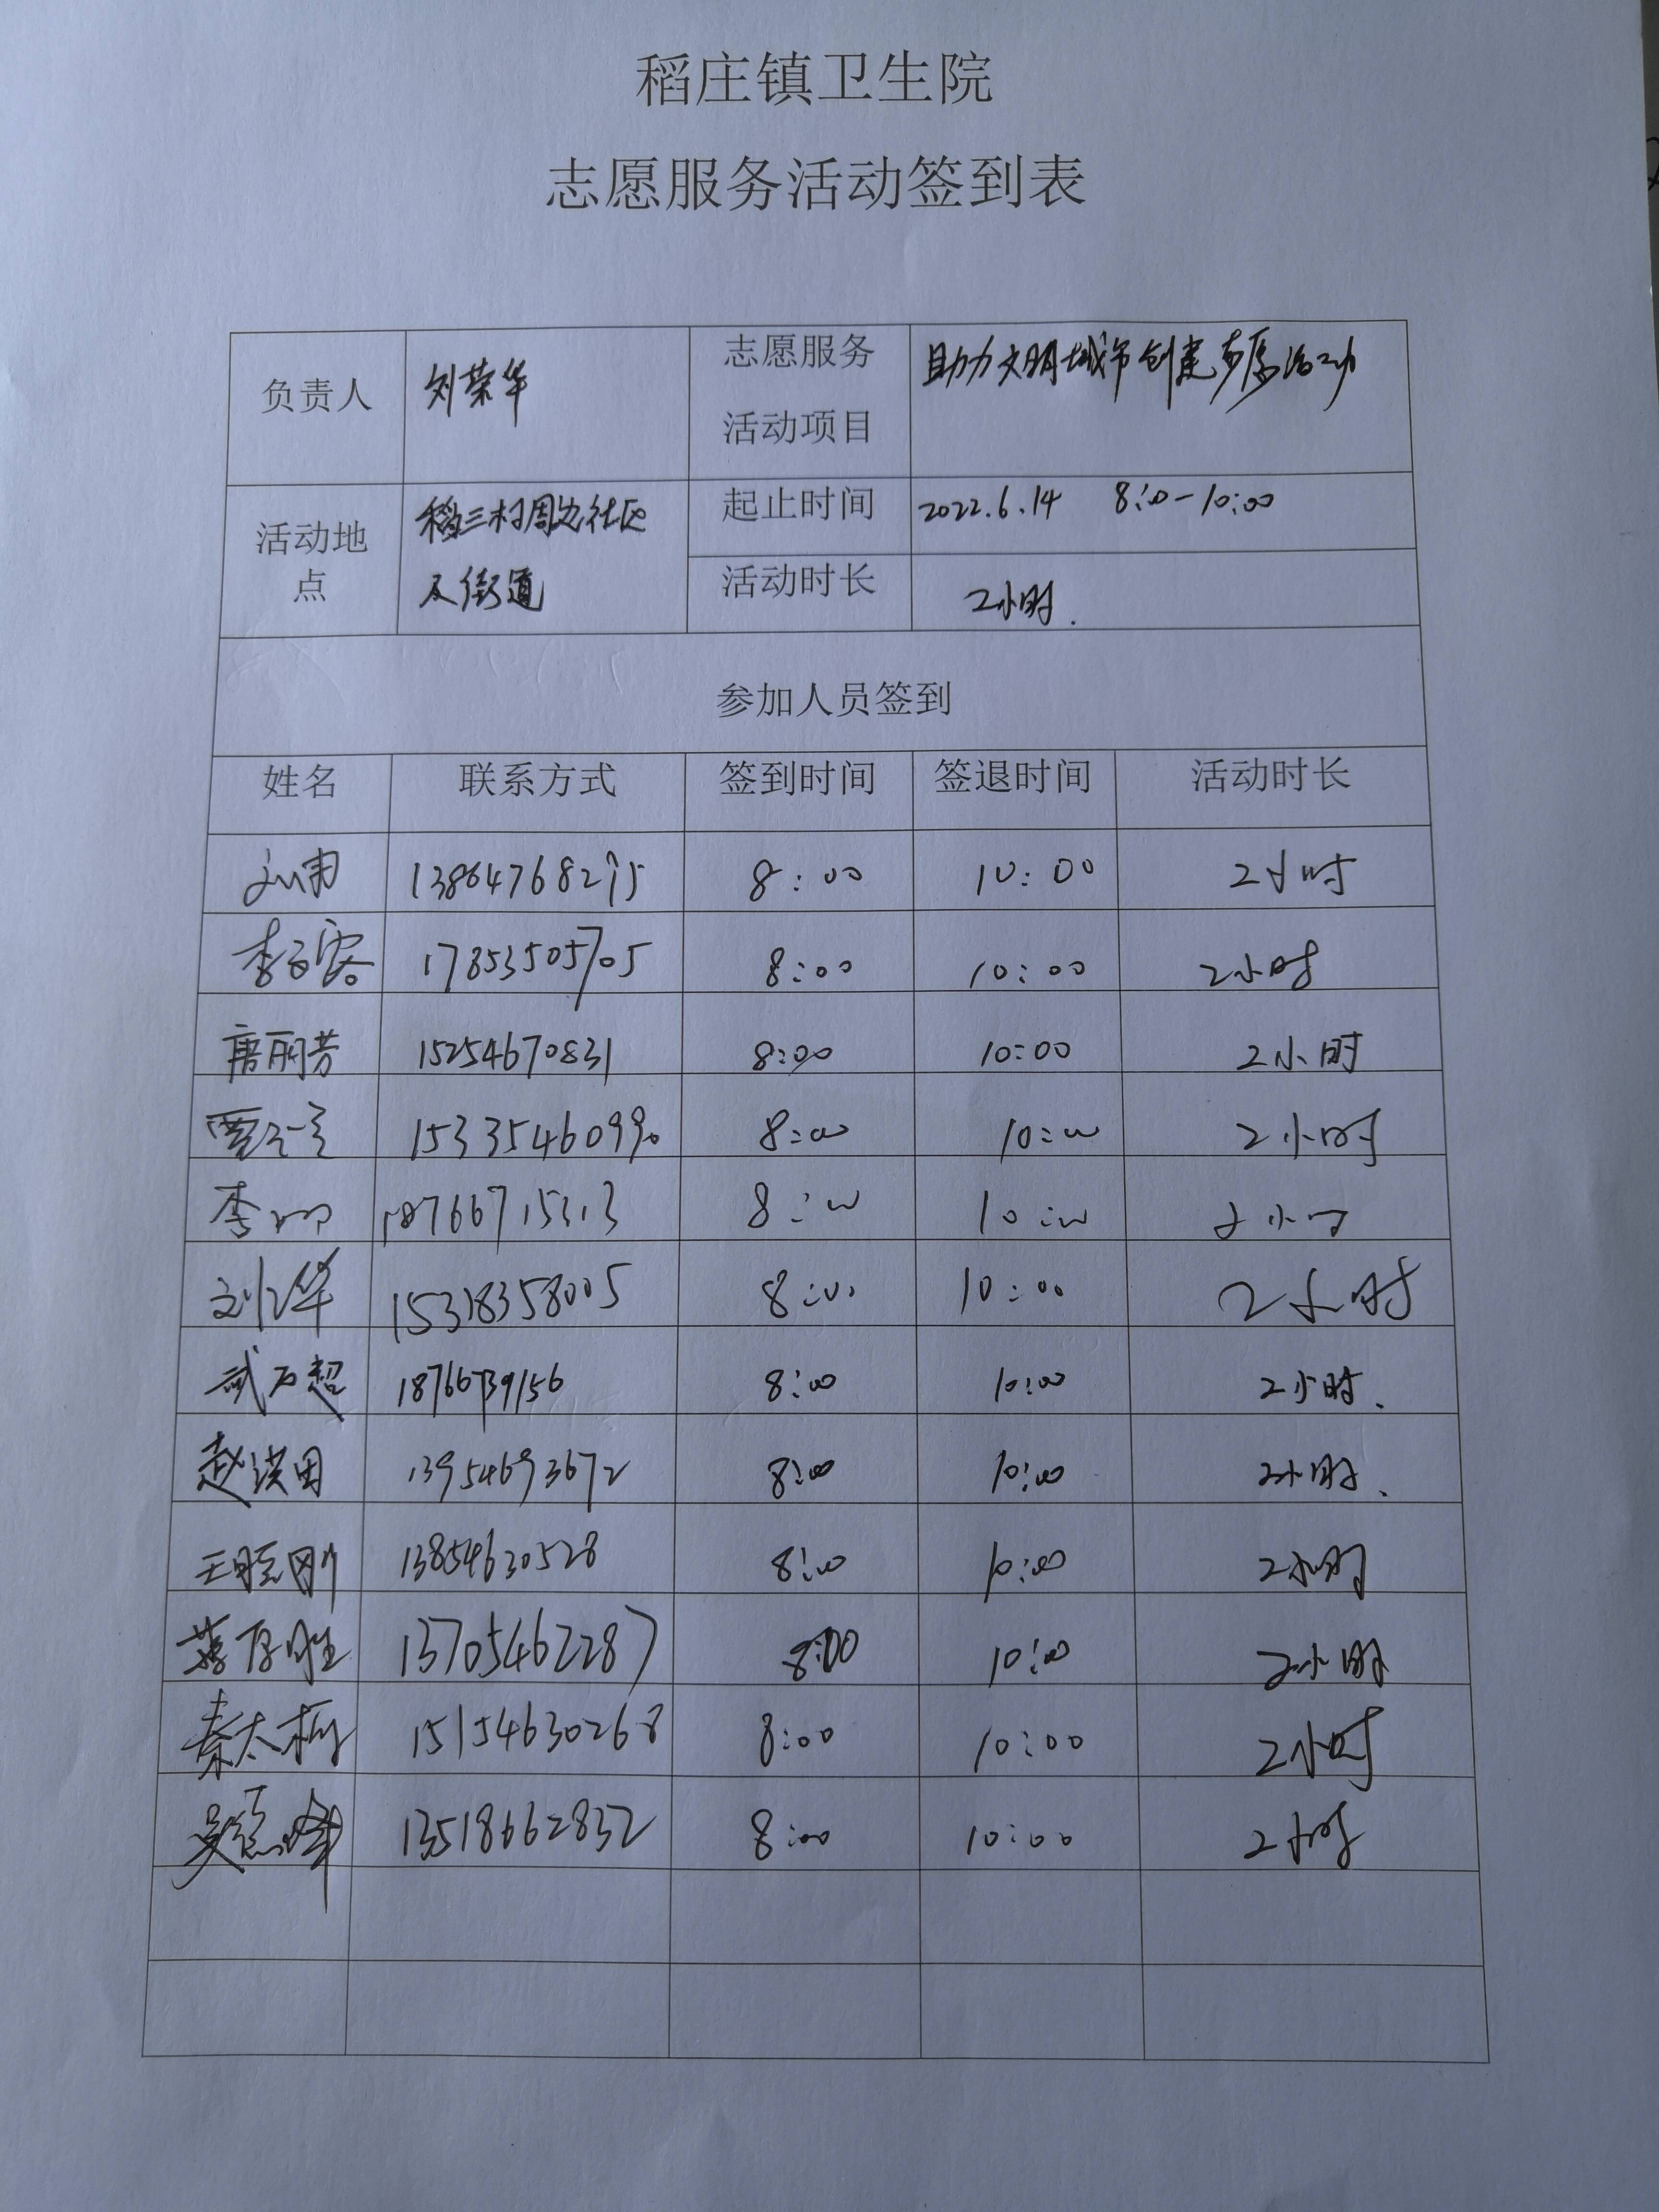 稻庄镇卫生院
志愿服务活动签到表
负责人 刘荣华 志愿服务活动项目 助力文明城市创建志愿活动
活动地点 稻三村周边社区及街道 起止时间 2022.6.14 8:00-10:00
活动时长 2小时.
参加人员签到
姓名 联系方式 签到时间 签退时间 活动时长
8:00 10:00 2小时
17853505705 8:00 10:00 2小时
唐丽芳 15254670831 8:00 10:00 2小时
15335460990 8:00 10:00 2小时
李 18766715313 8:00 10:00 2小时
刘 华 15318358005 8:00 10:00 2小时
武 超 8:00 10:00 2小时.
赵洪田 13954693672 8:00 10:00 2小时.
王晓刚 13854630528 8:00 10:00 2小时
13705462287 8:00 10:00 2小时
秦太 15154630268 8:00 10:00 2小时
吴 峰 13518662832 8:00 10:00 2小时